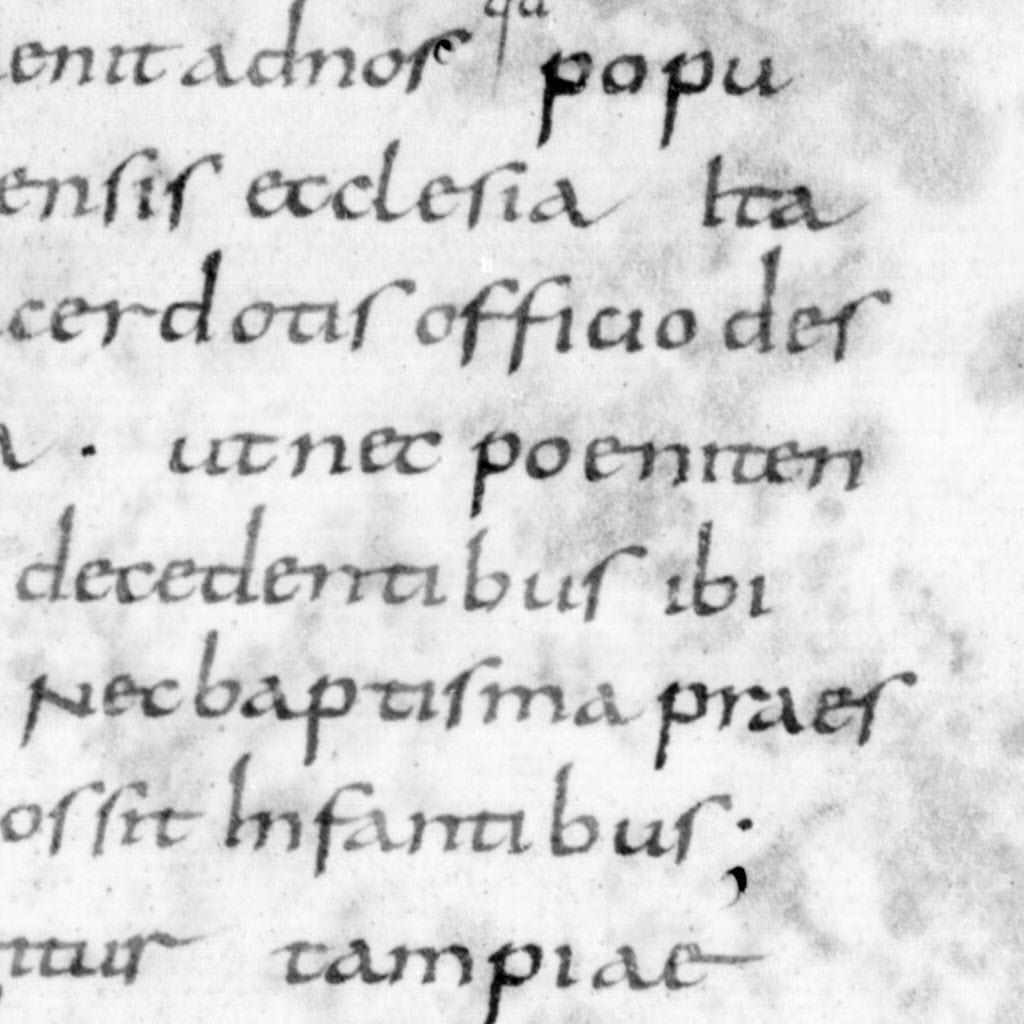 qu
enit ad nos popu
ensis ecclesia Ita
cerdotis officio des
a · ut nec poeniten
decedentibus ibi
Nec baptisma praes
ossit Infantibus ;
ntur tam piae